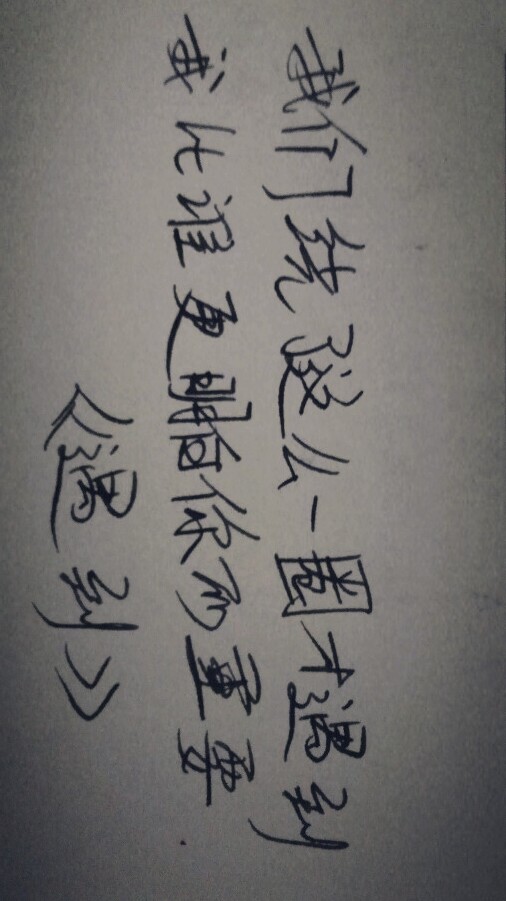 我们绕这么一圈才遇到
我比谁更明白你的重要
《遇到》